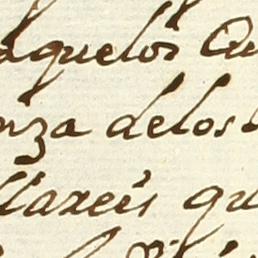 aquelos Qu
nza delos
llazeis qu